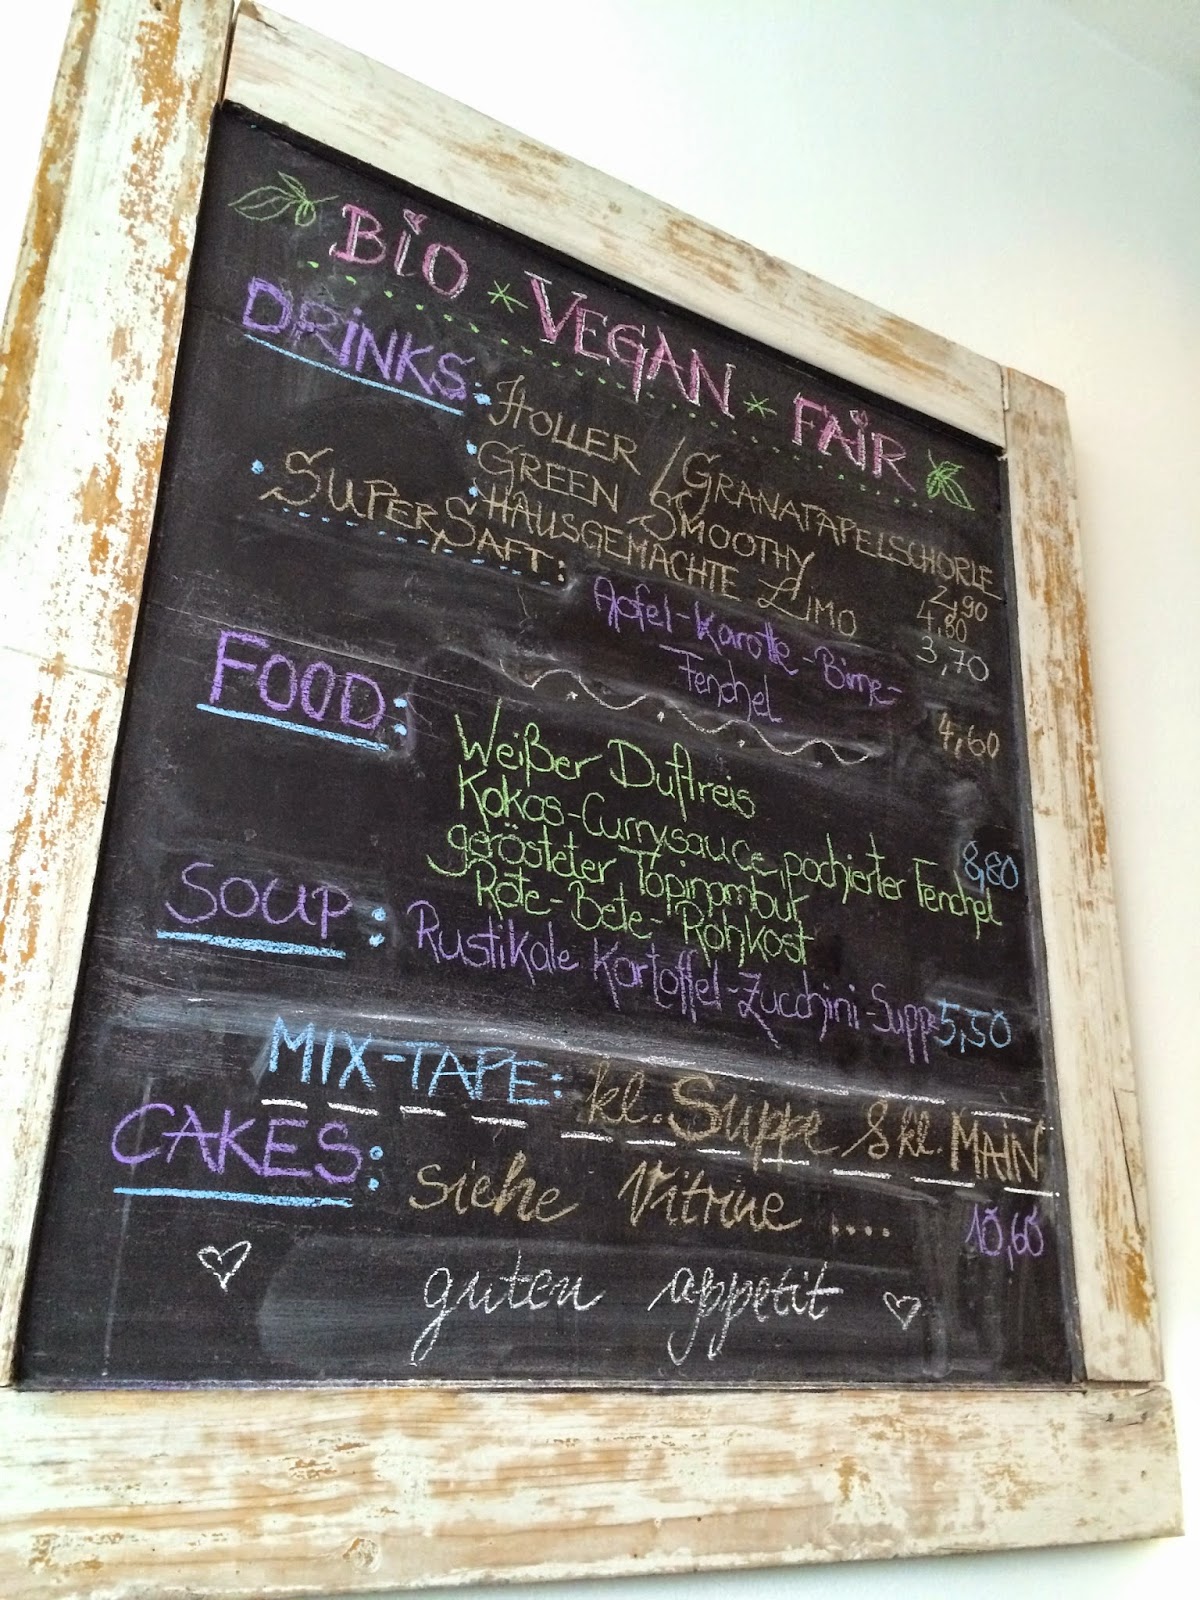 BiO * VEGAN * FAiR
DRiNKS: HOLLER / GRANATAPELSCHORLE 2,90
GREEN SMOOTHY 4,80
HAUSGEMACHTE LIMO 3,70
SUPERSAFT: Apfel-Karotte-Birne-
Fenchel 4,60
FOOD: Weißer Duftreis
Kokos-Currysauce, pochierter Fenchel 8,80
gerösteter Topinambur
Rote-Bete-Rohkost
SOUP: Rustikale Kartoffel-Zucchini-Suppe 5,50
MIX-TAPE: kl. Suppe & kl. MAiN
10,60
CAKES: siehe Vitrine ....
guten appetit